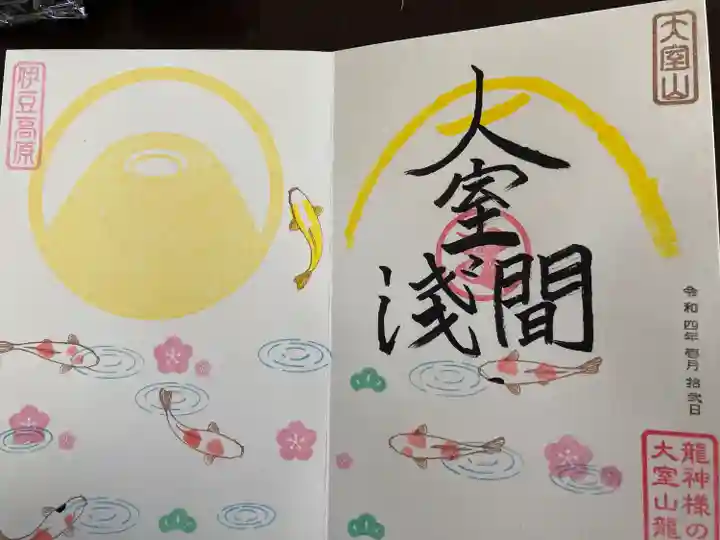 大室山
大室
淺間
令和四年 壱月 拾弐日
龍神様の
大室山龍
伊豆高原